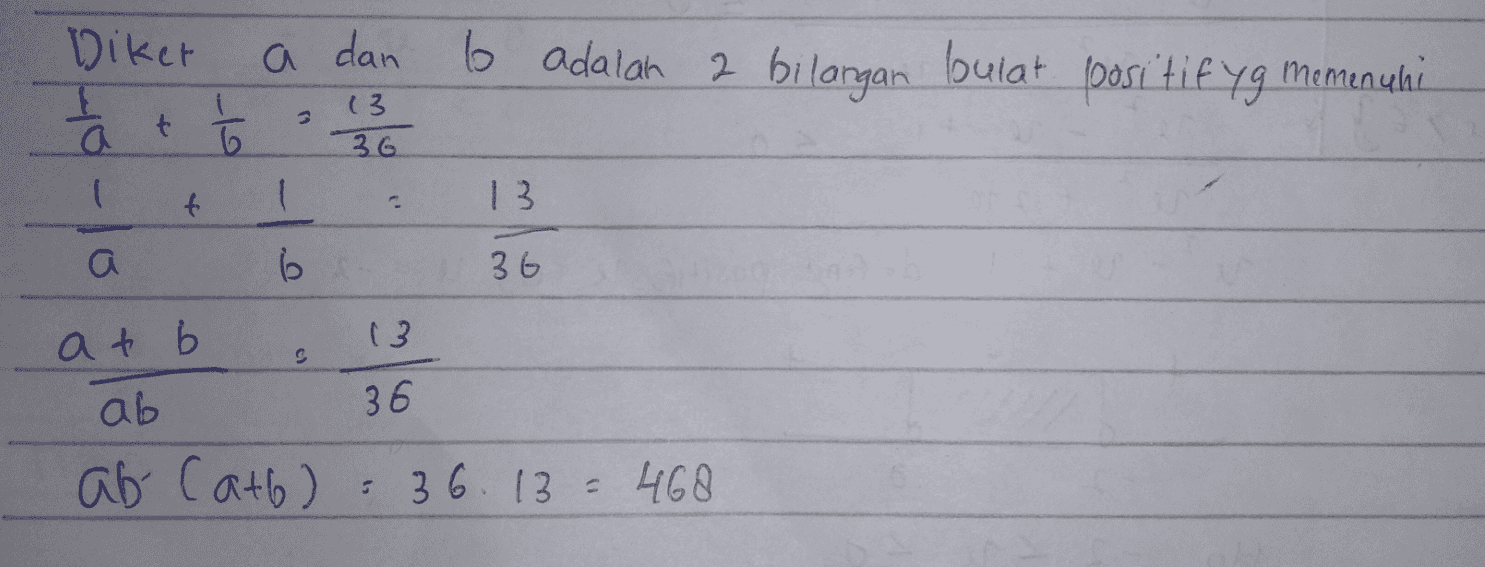 Diket a dan b adalah 2 bilangan bulat positif yg memenuhi
1/a + 1/b = 13/36
1/a + 1/b = 13/36
a + b / ab = 13/36
ab (a+b) = 36. 13 = 468